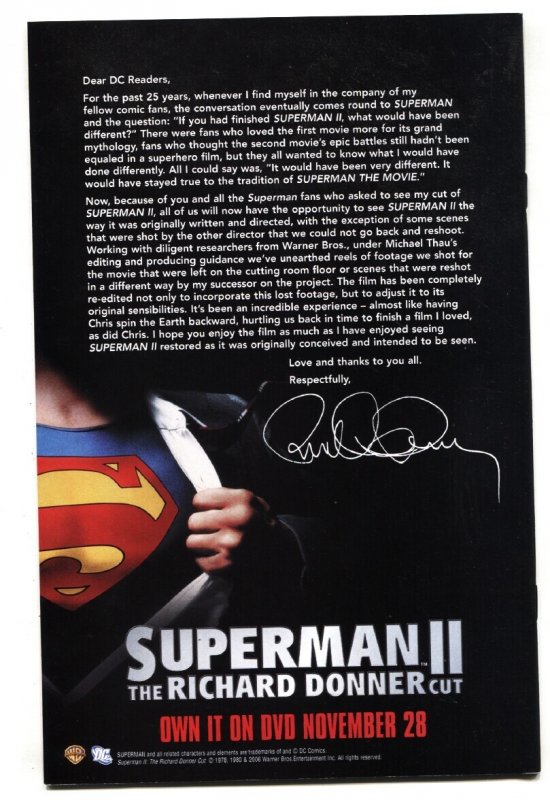 Dear DC Readers,
For the past 25 years, whenever I find myself in the company of my
fellow comic fans, the conversation eventually comes round to SUPERMAN
and the question: "If you had finished SUPERMAN II, what would have been
different?" There were fans who loved the first movie more for its grand
mythology, fans who thought the second movie's epic battles still hadn't been
equaled in a superhero film, but they all wanted to know what I would have
done differently. All I could say was, "It would have been very different. It
would have stayed true to the tradition of SUPERMAN THE MOVIE."
Now, because of you and all the Superman fans who asked to see my cut of
SUPERMAN II, all of us will now have the opportunity to see SUPERMAN II the
way it was originally written and directed, with the exception of some scenes
that were shot by the other director that we could not go back and reshoot.
Working with diligent researchers from Warner Bros., under Michael Thau's
editing and producing guidance we've unearthed reels of footage we shot for
the movie that were left on the cutting room floor or scenes that were reshot
in a different way by my successor on the project. The film has been completely
re-edited not only to incorporate this lost footage, but to adjust it to its
original sensibilities. It's been an incredible experience – almost like having
Chris spin the Earth backward, hurtling us back in time to finish a film I loved,
as did Chris. I hope you enjoy the film as much as I have enjoyed seeing
SUPERMAN II restored as it was originally conceived and intended to be seen.
Love and thanks to you all.
Respectfully,
S
SUPERMAN II
THE RICHARD DONNER CUT
OWN IT ON DVD NOVEMBER 28
WB DC
SUPERMAN and all related characters and elements are trademarks of and © DC Comics.
Superman II: The Richard Donner Cut © 1978, 1980 & 2006 Warner Bros. Entertainment Inc. All rights reserved.